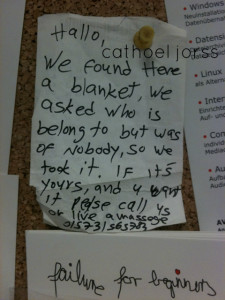 Hallo,
cathoel jorss
We found Here
a blanket, we
asked who is
belong to but was
of Nobody, so we
took it. If it's
yours, and u want
it please call us
or live a massage
failure for beginners
Windows
Neuinstallation
Datenübernahme
Datensi
Linux
als Alternat
Inter
Einrichte
Auf- und
Con
Indivi
Medie
Au
Audio